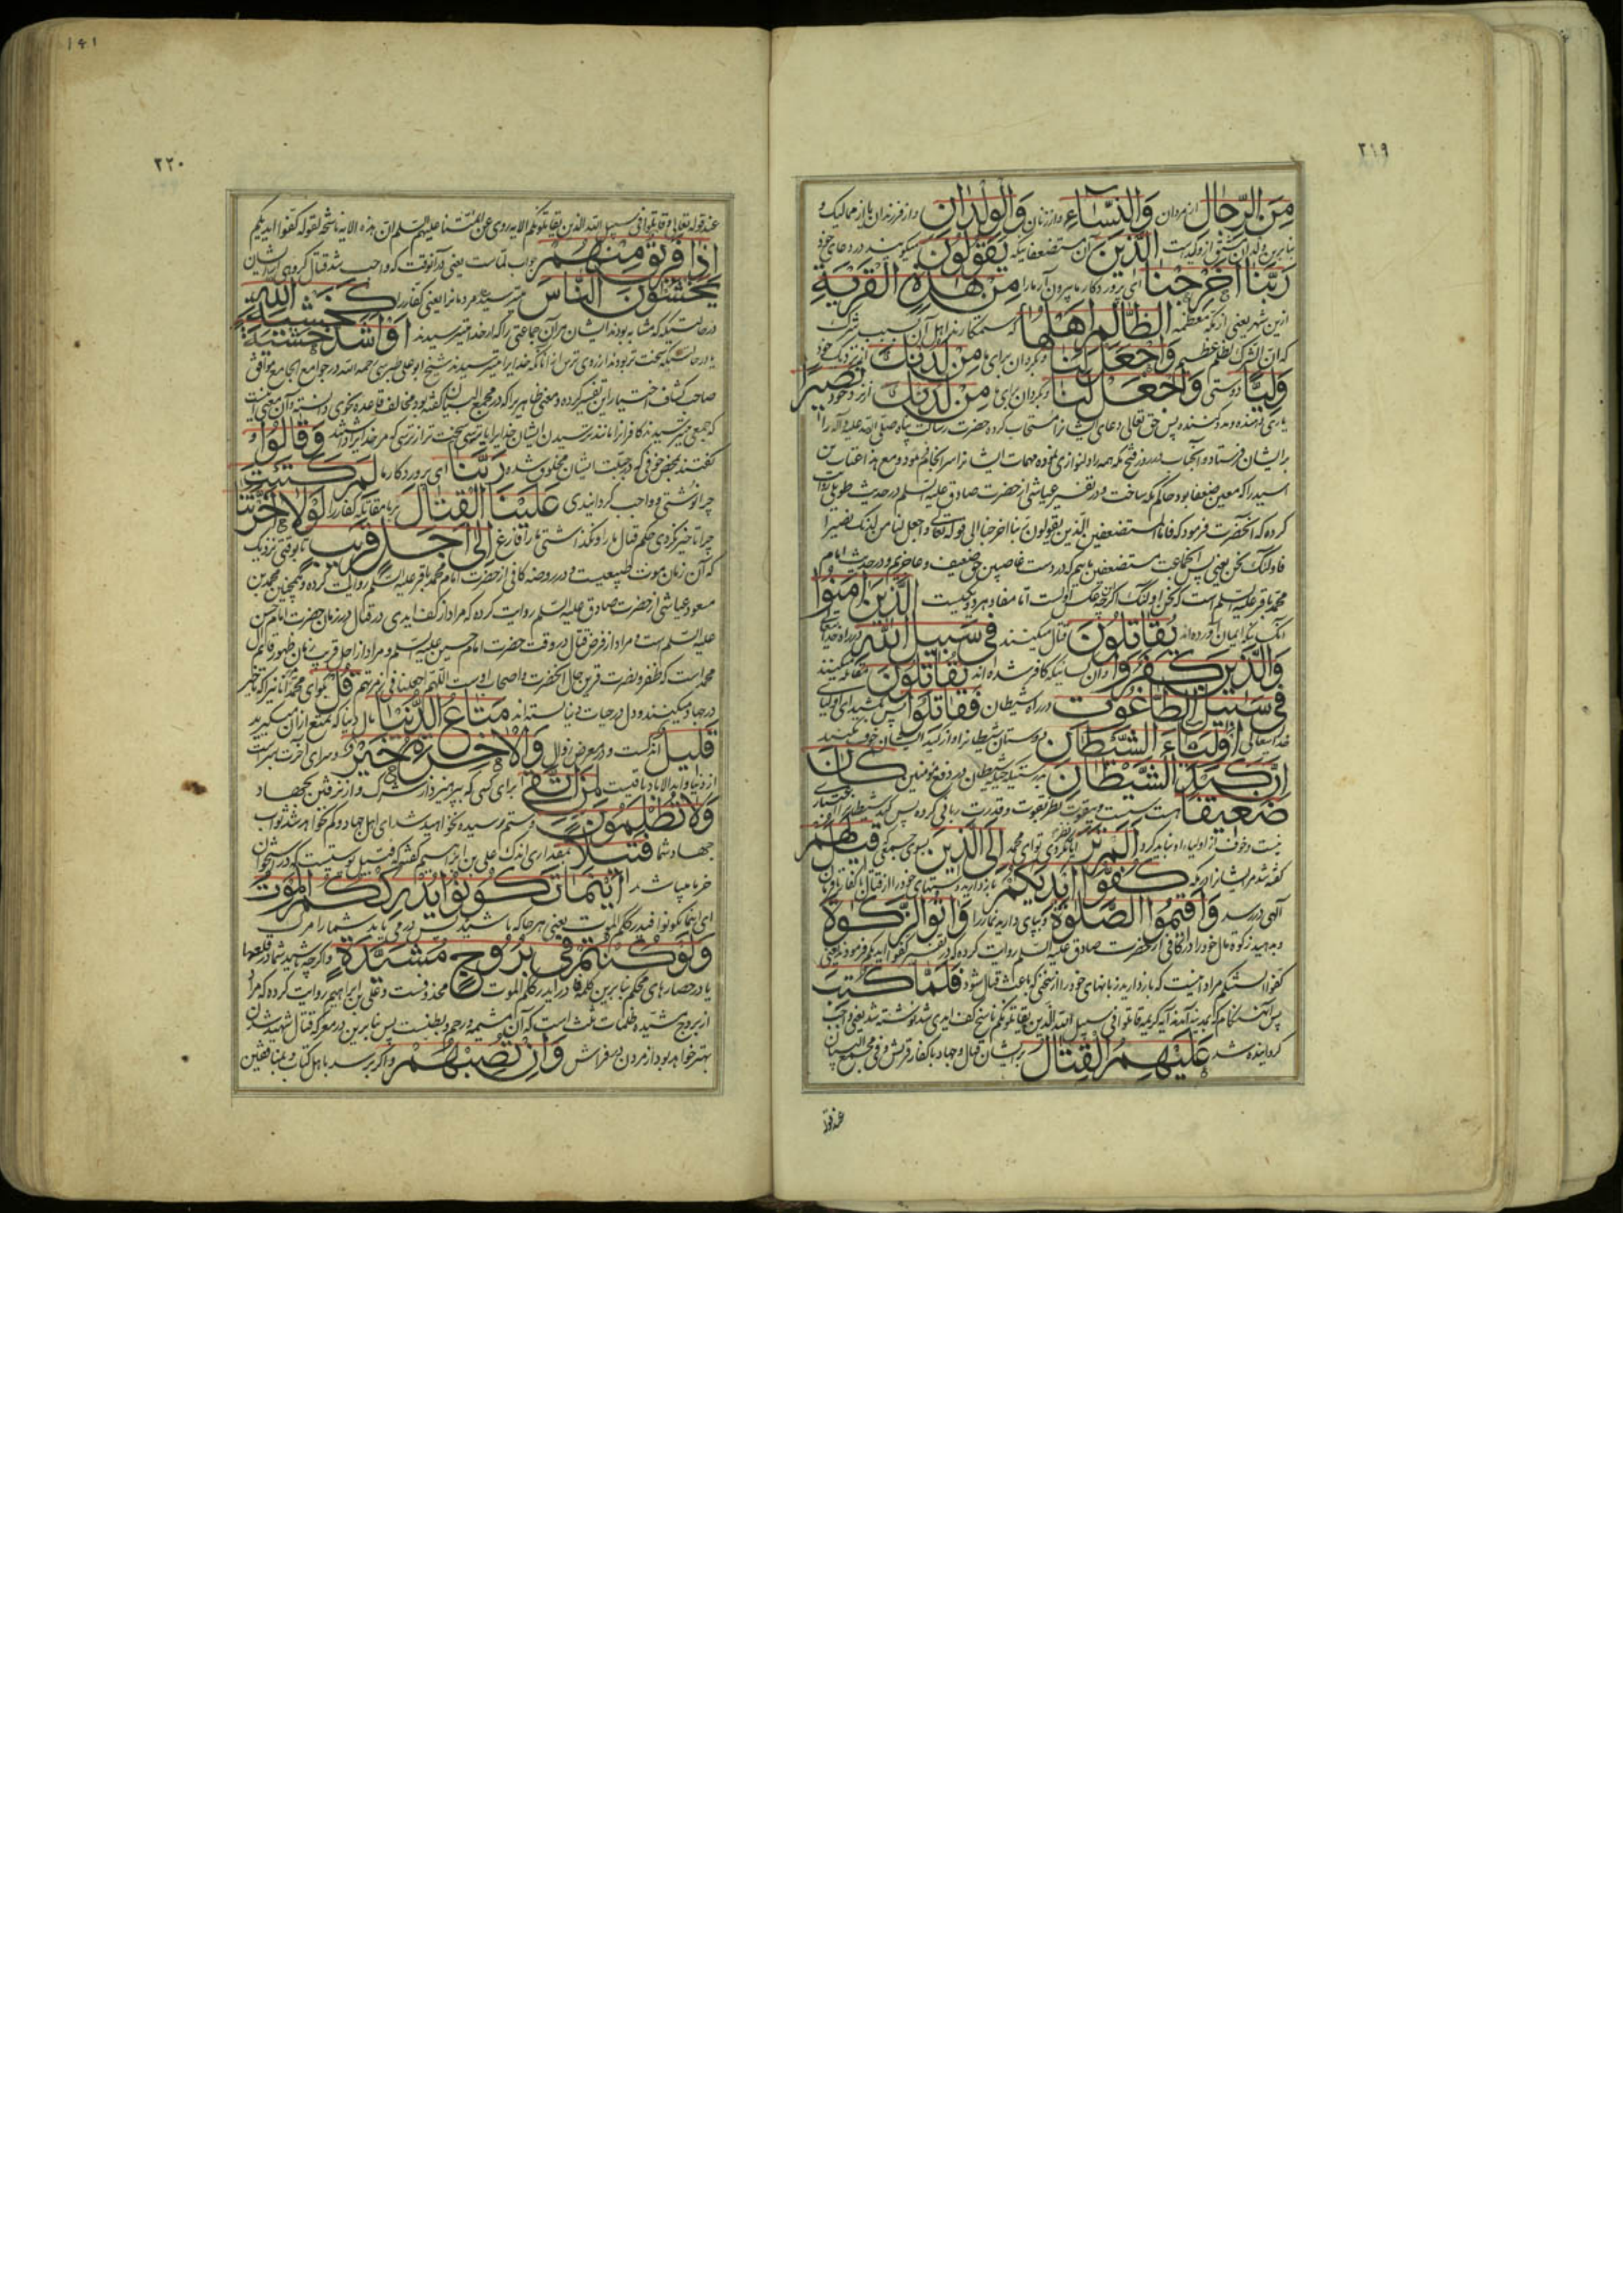 ٢١٩
مِنَ الرِّجٰالِ از مردان وَالنِّسٰاءِ و از زنان وَالْوِلْدٰانِ و از فرزندان یا از ممالیک و
بنا برین ولدان مشتق از ولیدست الَّذِینَ آن مستضعفانیکه یَقُولُونَ میکویند در دعای خود
رَبَّنٰا اَخْرِجْنٰا ای پروردکار ما بیرون آر ما را مِنْ هٰذِهِ الْقَرْیَةِ
ازین شهر یعنی از مکه معظمه الظّٰالِمِ اَهْلُهٰا که ستمکارند اهل آن بسبب شرک
که ان الشرک لظلم عظیم وَاجْعَلْ لَنٰا و بکردان برای ما مِنْ لَدُنْکَ از نزدیک خود
وَلِیّاً دوستی وَاجْعَلْ لَنٰا و بکردان برای ما مِنْ لَدُنْکَ از نزد خود نَصِیراً
یاری دهنده و مدد کننده پس حق تعالی دعای ایشانرا مستجاب کرده حضرت رسالت پناه صلی الله علیه و آله را
بر ایشان فرستاد و آنجناب در روز فتح مکه همه را دلنوازی نموده مهمات ایشانرا سرانجام فرمود و مع هذا عتاب بن
اسید را که معین ضعفا بود حاکم مکه ساخت و در تفسیر عیاشی از حضرت صادق علیه السلم در حدیث طویلی روایت
کرده که آنحضرت فرمود که فاما المستضعفین الذین یقولون ربنا اخرجنا الی قوله تعالی واجعل لنا من لدنک نصیرا
فاولئک نحن یعنی پس انجماعت مستضعفین مائیم که در دست غاصبین حق ضعیف و عاجزیم و در حدیث امام
محمد باقر علیه السلم است که نحن اولئک اکرچه عکس اولست اما مفاد هر دو یکیست الَّذِینَ اٰمَنُوا
آنکسانیکه ایمان آورده اند یُقٰاتِلُونَ قتال میکنند فِی سَبِیلِ اللّٰهِ در راه خدایتعالی
وَالَّذِینَ کَفَرُوا و آن کسانیکه کافر شده اند یُقٰاتِلُونَ مقاتله میکنند
فِی سَبِیلِ الطّٰاغُوتِ در راه شیطان فَقٰاتِلُوا پس بکشید ای اولیای
خدایتعالی اَوْلِیٰاءَ الشَّیْطٰانِ دوستان شیطانرا و از کید ایشان خوف مکنید
اِنَّ کَیْدَ الشَّیْطٰانِ بدرستیکه حیله شیطان در دفع مؤمنین کٰانَ
ضَعِیفاً هست سست و بیقوت نظر بقوت و قدرت ربانی کرده پس کید شیطانرا اعتباری
نیست و خوف از اولیاء او نباید کرد اَلَمْ تَرَ آیا نظر نکردی تو ای محمد اِلَی الَّذِینَ بسوی جمعی قِیلَ لَهُمْ
کفته شد مر ایشانرا در مکه کُفُّوا اَیْدِیَکُمْ باز دارید دستهای خود را از قتال با کفار تا فرمان
آلهی در رسد وَاَقِیمُوا الصَّلٰوةَ و بپای دارید نماز را وَاٰتُوا الزَّکٰوةَ
و بدهید زکوة مال خود را در کافی از حضرت صادق علیه السلم روایت کرده که در تفسیر کفوا ایدیکم فرمودند یعنی
کفوا السنتکم مراد اینست که باز دارید زبانهای خود را از سخنی که باعث قتال شود فَلَمّٰا کُتِبَ
پس آنهنکام که بمدینه آمدند آیه کریمه قاتلوا فی سبیل الله الذین یقاتلونکم ناسخ کف ایدی شد نوشته شد یعنی واجب
کردانیده شد عَلَیْهِمُ الْقِتٰالُ بر ایشان قتال و جهاد با کفار قریش و فی مجمع البیان
عند قوله
١٤١
٢٢٠
عند قوله تعالی و قاتلوا فی سبیل الله الذین یقاتلونکم الایه روی عن ائمتنا علیهم السلم ان هذه الایه ناسخه لقوله کفوا ایدیکم
اِذٰا فَرِیقٌ مِنْهُمْ جواب لماست یعنی در آنوقت که واجب شد قتال کروهی از ایشان
یَخْشَوْنَ النّٰاسَ میترسیدند مردمانرا یعنی کفار را کَخَشْیَةِ اللّٰهِ
در حالتیکه مشابه بودند ایشان مر آن جماعتی را که از خدا میترسیدند اَوْ اَشَدَّ خَشْیَةً
یا در حالتیکه سخت تر بودند از روی ترس از آنانکه خدایرا میترسیدند شیخ ابو علی طبرسی رحمه الله در جوامع الجامع موافق
صاحب کشاف اختیار این تفسیر کرده و معنی ظاهر را که در مجمع البیان کفته بود مخالف قاعده نحوی دانسته و آن معنی اینست
که جمعی میترسیدند کافرانرا مانند ترسیدن ایشان خدایرا یا ترسی سخت تر از ترسی که مر خدایرا داشتند وَقٰالُوا و
کفتند بمحض خوفی که در جبلت ایشان مخلوق شده رَبَّنٰا ای پروردکار ما لِمَ کَتَبْتَ
چرا نوشتی و واجب کردانیدی عَلَیْنَا الْقِتٰالَ بر ما مقاتله کفار را لَوْلٰا اَخَّرْتَنٰا
چرا تاخیر نکردی حکم قتال ما را و نکذاشتی ما را فارغ اِلٰی اَجَلٍ قَرِیبٍ تا بوقتی نزدیک
که آن زمان موت طبیعیست و در روضه کافی از حضرت امام محمد باقر علیه السلم روایت کرده و همچنین محمد بن
مسعود عیاشی از حضرت صادق علیه السلم روایت کرده که مراد از کف ایدی در قتال در زمان حضرت امام حسن
علیه السلم است و مراد از فرض قتال در وقت حضرت امام حسین علیه السلم و مراد از اجل قریب زمان ظهور قائم آل
محمد است که ظفر و نصرت قرین حال آنحضرت و اصحاب اوست اللهم اجعلنا فی زمرتهم قُلْ بکو ای محمد آنانیرا که تاخیر
در جهاد میکنند و دل در حیات دنیا بسته اند مَتٰاعُ الدُّنْیٰا مال دنیا که تمتع از آن میکیرند
قَلِیلٌ اندکست و در معرض زوال وَالْاٰخِرَةُ خَیْرٌ و سرای آخرت بهترست
از دنیا و ابد الاباد باقیست لِمَنِ اتَّقٰی برای کسی که بپرهیزد از شرک و از نرفتن بجهاد
وَلٰا تُظْلَمُونَ و ستم رسیده نخواهید شد ای اهل جهاد و کم نخواهد شد ثواب
جهاد شما فَتِیلاً بمقداری اندک علی بن ابراهیم کفته که فتیل پوستیست که در استخوان
خرما میباشد اَیْنَمٰا تَکُونُوا یُدْرِکْکُمُ الْمَوْتُ
ای اینما تکونوا فیدرککم الموت یعنی هر جا که باشید پس در می یابد شما را مرک
وَلَوْ کُنْتُمْ فِی بُرُوجٍ مُشَیَّدَةٍ و اکرچه باشید شما در قلعها
یا در حصارهای محکم بنا برین کلمه فا در یدرککم الموت محذوفست و علی بن ابراهیم روایت کرده که مراد
از بروج مشیده ظلمات ثلث است که آن مشیمه و رحم و بطنست پس بنا برین در معرکه قتال شهید شدن
بهتر خواهد بود از مردن در فراش وَاِنْ تُصِبْهُمْ و اکر برسد باهل کتاب و بمنافقین